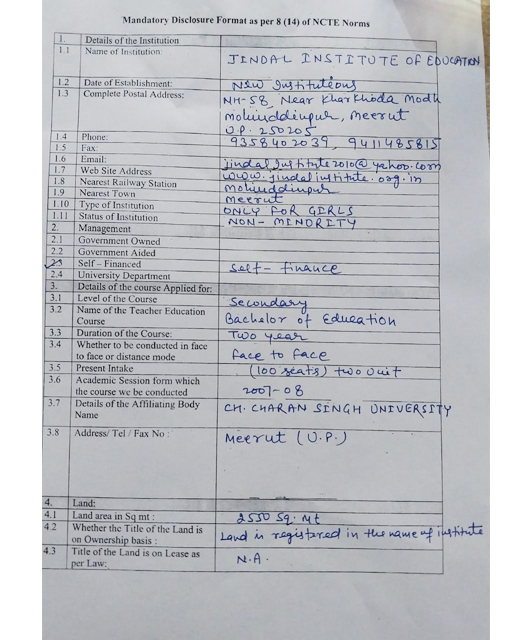 Mandatory Disclosure Format as per 8 (14) of NCTE Norms
1. Details of the Institution
1.1 Name of Institution: JINDAL INSTITUTE OF EDUCATION
1.2 Date of Establishment: New Institutions
1.3 Complete Postal Address: NH-58, Near Kharkhoda Modh
Mohiuddinpur, Meerut
U.P. 250205
1.4 Phone: 9358402039, 9411485815
1.5 Fax:
1.6 Email: jindalinstitute2010@yahoo.com
1.7 Web Site Address www.jindalinstitute.org.in
1.8 Nearest Railway Station Mohiuddinpur
1.9 Nearest Town Meerut
1.10 Type of Institution ONLY FOR GIRLS
1.11 Status of Institution NON-MINORITY
2. Management
2.1 Government Owned
2.2 Government Aided
2.3 Self – Financed Self-finance
2.4 University Department
3. Details of the course Applied for:
3.1 Level of the Course Secondary
3.2 Name of the Teacher Education Bachelor of Education
Course
3.3 Duration of the Course: Two year
3.4 Whether to be conducted in face face to face
to face or distance mode
3.5 Present Intake (100 seats) two unit
3.6 Academic Session form which 2007-08
the course we be conducted
3.7 Details of the Affiliating Body CH. CHARAN SINGH UNIVERSITY
Name
3.8 Address/ Tel / Fax No : Meerut (U.P.)
4. Land:
4.1 Land area in Sq mt : 2550 Sq. Mt
4.2 Whether the Title of the Land is Land is registered in the name of institute
on Ownership basis :
4.3 Title of the Land is on Lease as N.A.
per Law: